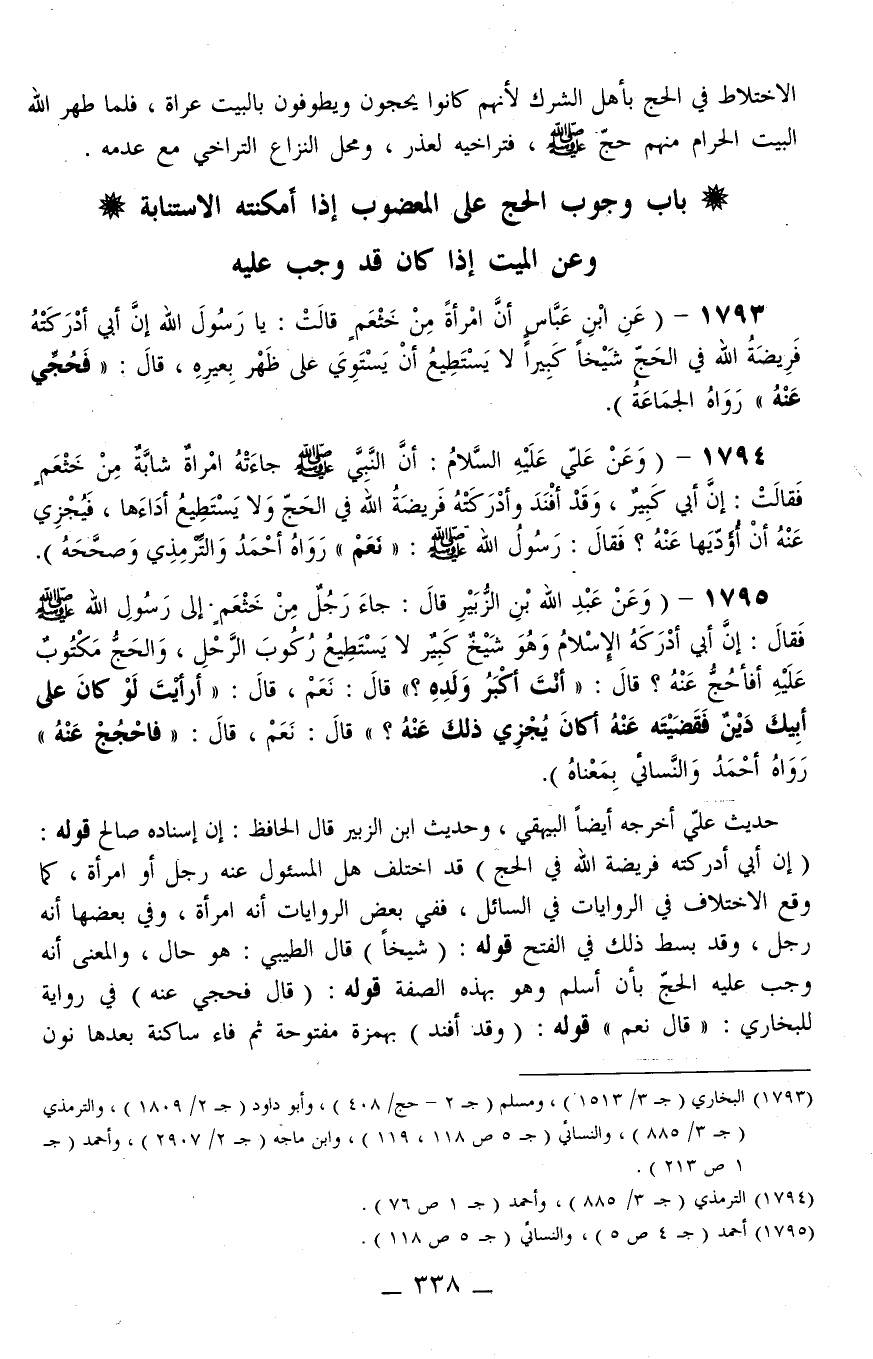 الاختلاط في الحج بأهل الشرك لأنهم كانوا يحجون ويطوفون بالبيت عراة ، فلما طهر الله
البيت الحرام منهم حجّ ﷺ ، فتراخيه لعذر ، ومحل النزاع التراخي مع عدمه .
✹ باب وجوب الحج على المعضوب إذا أمكنته الاستنابة ✹
وعن الميت إذا كان قد وجب عليه
١٧٩٣ – ( عَنِ ابْنِ عَبَّاسٍ أنَّ امْرأةً مِنْ خَثْعَمٍ قالَتْ : يا رَسُولَ الله إنَّ أبي أدْرَكَتْهُ
فَرِيضَةُ الله في الحَجّ شَيْخاً كَبِيراً لا يَسْتَطِيعُ أنْ يَسْتَوِيَ على ظَهْرِ بِعيرِهِ ، قالَ : « فَحُجِّي
عَنْهُ » رَوَاهُ الجمَاعَةُ ).
١٧٩٤ – ( وَعَنْ عَليّ عَلَيْهِ السَّلامُ : أنَّ النَّبِيَّ ﷺ جاءَتْهُ امْراةٌ شابَّةٌ مِنْ خَثْعَمٍ
فَقالَتْ : إنَّ أبي كَبِيرٌ ، وَقَدْ أفْنَدَ وأدْرَكَتْهُ فَرِيضَةُ الله في الحَجّ وَلا يَسْتَطِيعُ أدَاءَها ، فَيُجْزِي
عَنْهُ أنْ أُؤَدّيَها عَنْهُ ؟ فَقالَ : رَسُولُ الله ﷺ : « نَعَمْ » رَوَاهُ أحْمَدُ وَالتِّرْمِذي وَصحَّحَهُ ).
١٧٩٥ – ( وَعَنْ عَبْدِ الله بْنِ الزُّبَيْرِ قالَ : جاءَ رَجُلٌ مِنْ خَثْعَمٍ إلى رَسُولِ الله ﷺ
فَقالَ : إنَّ أبي أدْرَكَهُ الإسْلامُ وَهُوَ شَيْخٌ كَبِيرٌ لا يَسْتَطِيعُ رُكُوبَ الرَّحْلِ ، وَالحَجُّ مَكْتُوبٌ
عَلَيْهِ أفأحُجُّ عَنْهُ ؟ قالَ : « أنْتَ أكْبَرُ وَلَدِهِ ؟» قالَ : نَعَمْ ، قالَ : « أرأيْتَ لَوْ كانَ على
أبِيكَ دَيْنٌ فَقَضَيْتَه عَنْهُ أكانَ يُجْزِي ذلكَ عَنْهُ ؟ » قالَ : نَعَمْ ، قالَ : « فاحْجُجْ عَنْهُ »
رَوَاهُ أحْمَدُ وَالنَّسائي بِمَعْناهُ ).
حديث عليّ أخرجه أيضاً البيهقي ، وحديث ابن الزبير قال الحافظ : إن إسناده صالح قوله :
( إن أبي أدركته فريضة الله في الحج ) قد اختلف هل المسئول عنه رجل أو امرأة ، كما
وقع الاختلاف في الروايات في السائل ، ففي بعض الروايات أنه امرأة ، وفي بعضها أنه
رجل ، وقد بسط ذلك في الفتح قوله : ( شيخاً ) قال الطيبي : هو حال ، والمعنى أنه
وجب عليه الحجّ بأن أسلم وهو بهذه الصفة قوله : ( قال فحجي عنه ) في رواية
للبخاري : « قال نعم » قوله : ( وقد أفند ) بهمزة مفتوحة ثم فاء ساكنة بعدها نون
(١٧٩٣) البخاري ( جـ ٣/ ١٥١٣ ) ، ومسلم ( جـ ٢ – حج/ ٤٠٨ ) ، وأبو داود ( جـ ٢/ ١٨٠٩ ) ، والترمذي
( جـ ٣/ ٨٨٥ ) ، والنسائي ( جـ ٥ ص ١١٨ ، ١١٩ ) ، وابن ماجه ( جـ ٢/ ٢٩٠٧ ) ، وأحمد ( جـ
١ ص ٢١٣ ) .
(١٧٩٤) الترمذي ( جـ ٣/ ٨٨٥ ) ، وأحمد ( جـ ١ ص ٧٦ ) .
(١٧٩٥) أحمد ( جـ ٤ ص ٥ ) ، والنسائي ( جـ ٥ ص ١١٨ ) .
ـ ٣٣٨ ـ